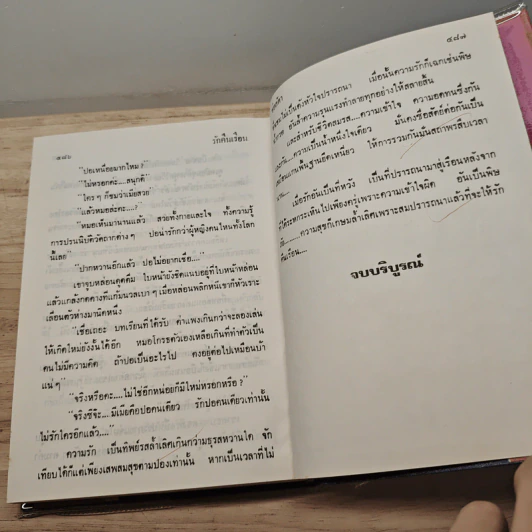 ๔๘๖
รักคืนเรือน
"ปอเหนื่อยมากไหม?"
"ไม่หรอกค่ะ....สนุกดี
"ใคร ๆ ก็ชมว่าเมียสวย"
"แล้วหมอล่ะคะ....?"
"หมอเห็นมานานแล้ว สวยทั้งกายและใจ ทั้งความรู้
การปรนนิบัติวัตถากต่าง ๆ ปอน่ารักกว่าผู้หญิงคนไหนทั้งโลก
นี้เลย"
"ปากหวานอีกแล้ว ปอไม่อยากเชื่อ...."
เขาจูบหล่อนดูดดื่ม ใบหน้ายังชิดแนบอยู่ที่ใบหน้าหล่อน
แล้วแกล้งกดคางที่แก้มนวลเบา ๆ เมื่อหล่อนพลิกหนีเขาก็หัวเราะ
เลื่อนตัวห่างมานิดหนึ่ง
"เชื่อเถอะ บทเรียนที่ได้รับ ค่าแพงเกินกว่าจะลองเล่น
ให้เกิดใหม่ยังงั้นได้อีก หมอโกรธตัวเองเหลือเกินที่ทำตัวเป็น
คนไม่มีความคิด ถ้าปอเป็นอะไรไป คงอยู่ต่อไปเหมือนบ้า
แน่ ๆ"
"จริงหรือคะ....ไม่ใช่อีกหน่อยก็มีใหม่หรอกหรือ?"
"จริงซีจ๊ะ....มีเมียคือปอคนเดียว รักปอคนเดียวเท่านั้น
ไม่รักใครอีกแล้ว...."
ความรัก เป็นทิพย์รสล้ำเลิศเกินกว่ามธุรสหวานใด จัก
เทียบได้ก็แต่เพียงเสพสมสุขตามปองเท่านั้น หากเป็นเวลาที่ไม่
๔๘๗
เป็นดังหัวใจปรารถนา เมื่อนั้นความรักก็เฉกเช่นพิษ
อันล้ำความรุนแรงทำลายทุกอย่างให้สลายสิ้น
และสำหรับชีวิตสมรส....ความเข้าใจ ความอดทนซึ่งกัน
ความเป็นน้ำหนึ่งใจเดียว มั่นคงซื่อสัตย์ต่อกันเป็น
พื้นฐานยึดเหนี่ยว ให้การรวมกันมั่นสถาพรสืบเวลา
เมื่อรักอันเป็นที่หวัง เป็นที่ปรารถนามาสู่เรือนหลังจาก
ไปเพียงครู่เพราะความเข้าใจผิด อันเป็นพิษ
ความสุขก็เกษมล้ำเลิศเพราะสมปรารถนาแล้วที่จะให้รัก
คืนเรือน....
จบบริบูรณ์